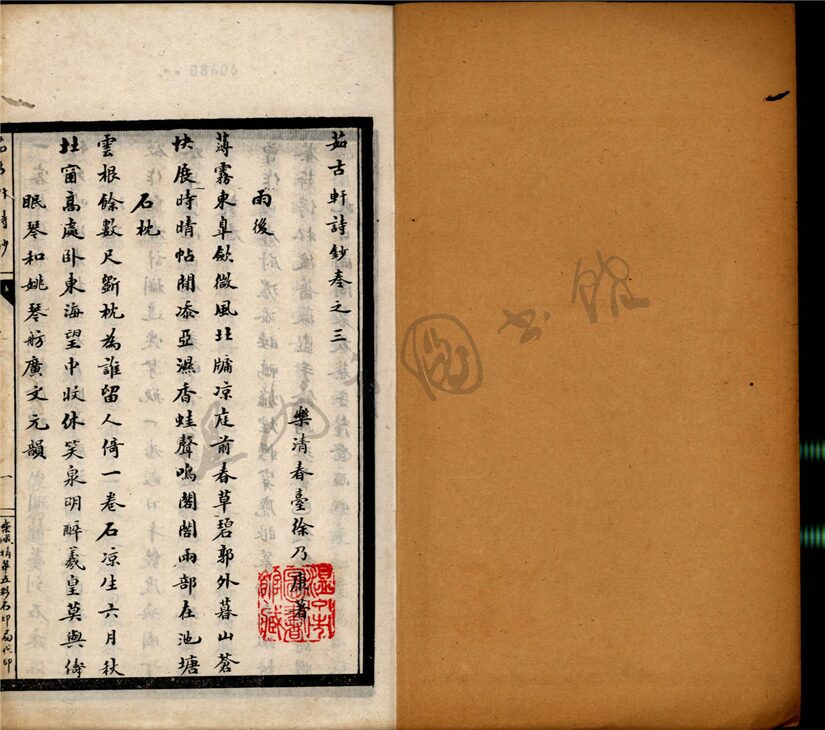 茹古軒詩鈔卷之三
樂清春臺徐乃康著
雨後
薄霧東皐歛微風北牖凉庭前春草碧郭外暮山蒼
快展時晴帖閒添亞濕香蛙聲鳴閣閣兩部在池塘
石枕
雲根餘數尺斵枕為誰留人倚一卷石凉生六月秋
北窗高處卧東海望中收休笑泉明醉羲皇莫與儔
眠琴和姚琴舫廣文元韻
一
五彩石印局代印